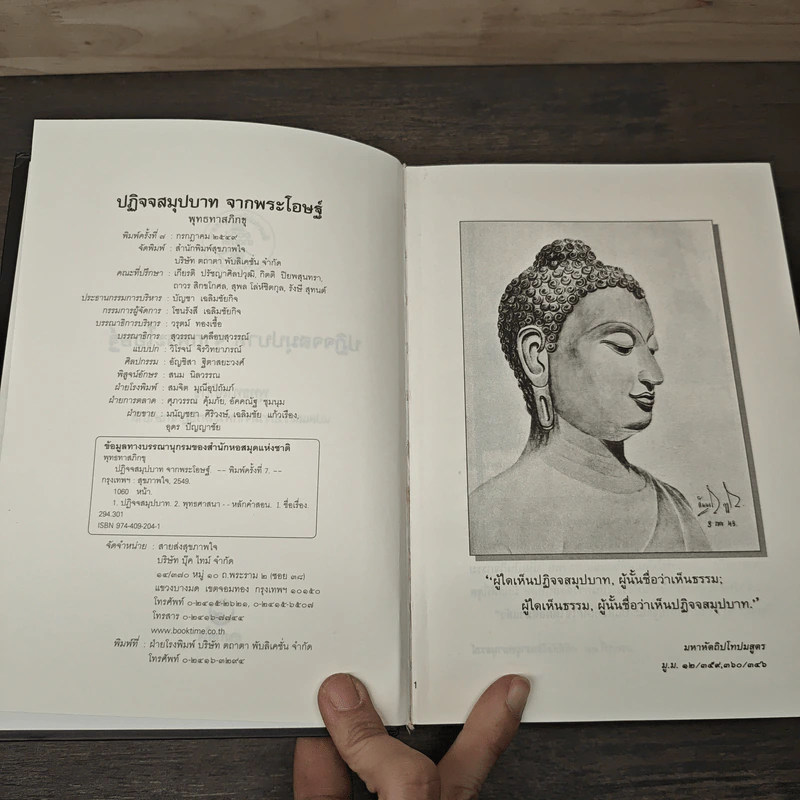 ปฏิจจสมุปบาท จากพระโอษฐ์
พุทธทาสภิกขุ
พิมพ์ครั้งที่ ๗ : กรกฎาคม ๒๕๔๙
จัดพิมพ์ : สำนักพิมพ์สุขภาพใจ
บริษัท ตถาตา พับลิเคชั่น จำกัด
คณะที่ปรึกษา : เกียรติ ปรัชญาศิลปวุฒิ, กิตติ ปิยพสุนทรา,
ถาวร สิกขโกศล, สุพล โล่ห์ชิตกุล, รังษี สุทนต์
ประธานกรรมการบริหาร : บัญชา เฉลิมชัยกิจ
กรรมการผู้จัดการ : โชนรังสี เฉลิมชัยกิจ
บรรณาธิการบริหาร : วรุตม์ ทองเชื้อ
บรรณาธิการ : สุวรรณ เคลือบสุวรรณ์
แบบปก : วิโรจน์ จิรวิทยาภรณ์
ศิลปกรรม : อัญชิสา ฐิตาสยะวงศ์
พิสูจน์อักษร : สนม นิลวรรณ
ฝ่ายโรงพิมพ์ : สมจิต มุณีอุปถัมภ์
ฝ่ายการตลาด : ศุภวรรณ คุ้มภัย, อัคคณัฐ ชุมนุม
ฝ่ายขาย : มนัญชยา ศิริวงษ์, เฉลิมชัย แก้วเรือง,
อุดร ปัญญาชัย
ข้อมูลทางบรรณานุกรมของสำนักหอสมุดแห่งชาติ
พุทธทาสภิกขุ
ปฏิจจสมุปบาท จากพระโอษฐ์ -- พิมพ์ครั้งที่ 7. --
กรุงเทพฯ : สุขภาพใจ, 2549.
1060 หน้า.
1. ปฏิจจสมุปบาท. 2. พุทธศาสนา - - หลักคำสอน. 1 ชื่อเรื่อง.
294.301
ISBN 974-409-204-1
จัดจำหน่าย : สายส่งสุขภาพใจ
บริษัท บุ๊ค ไทม์ จำกัด
๑๔/๓๗๐ หมู่ ๑๐ ถ.พระราม ๒ (ซอย ๓๘)
แขวงบางมด เขตจอมทอง กรุงเทพฯ ๑๐๑๕๐
โทรศัพท์ ๐-๒๔๑๕-๒๖๒๑, ๐-๒๔๑๕-๖๕๐๗
โทรสาร ๐-๒๔๑๖-๗๗๔๔
www.booktime.co.th
พิมพ์ที่ : ฝ่ายโรงพิมพ์ บริษัท ตถาตา พับลิเคชั่น จำกัด
โทรศัพท์ ๐-๒๔๑๖-๓๒๙๔
"ผู้ใดเห็นปฏิจจสมุปบาท, ผู้นั้นชื่อว่าเห็นธรรม;
ผู้ใดเห็นธรรม, ผู้นั้นชื่อว่าเห็นปฏิจจสมุปบาท."
มหาหัตถิปโทปมสูตร
มู.ม. ๑๒/๓๕๙,๓๖๐/๓๔๖
1